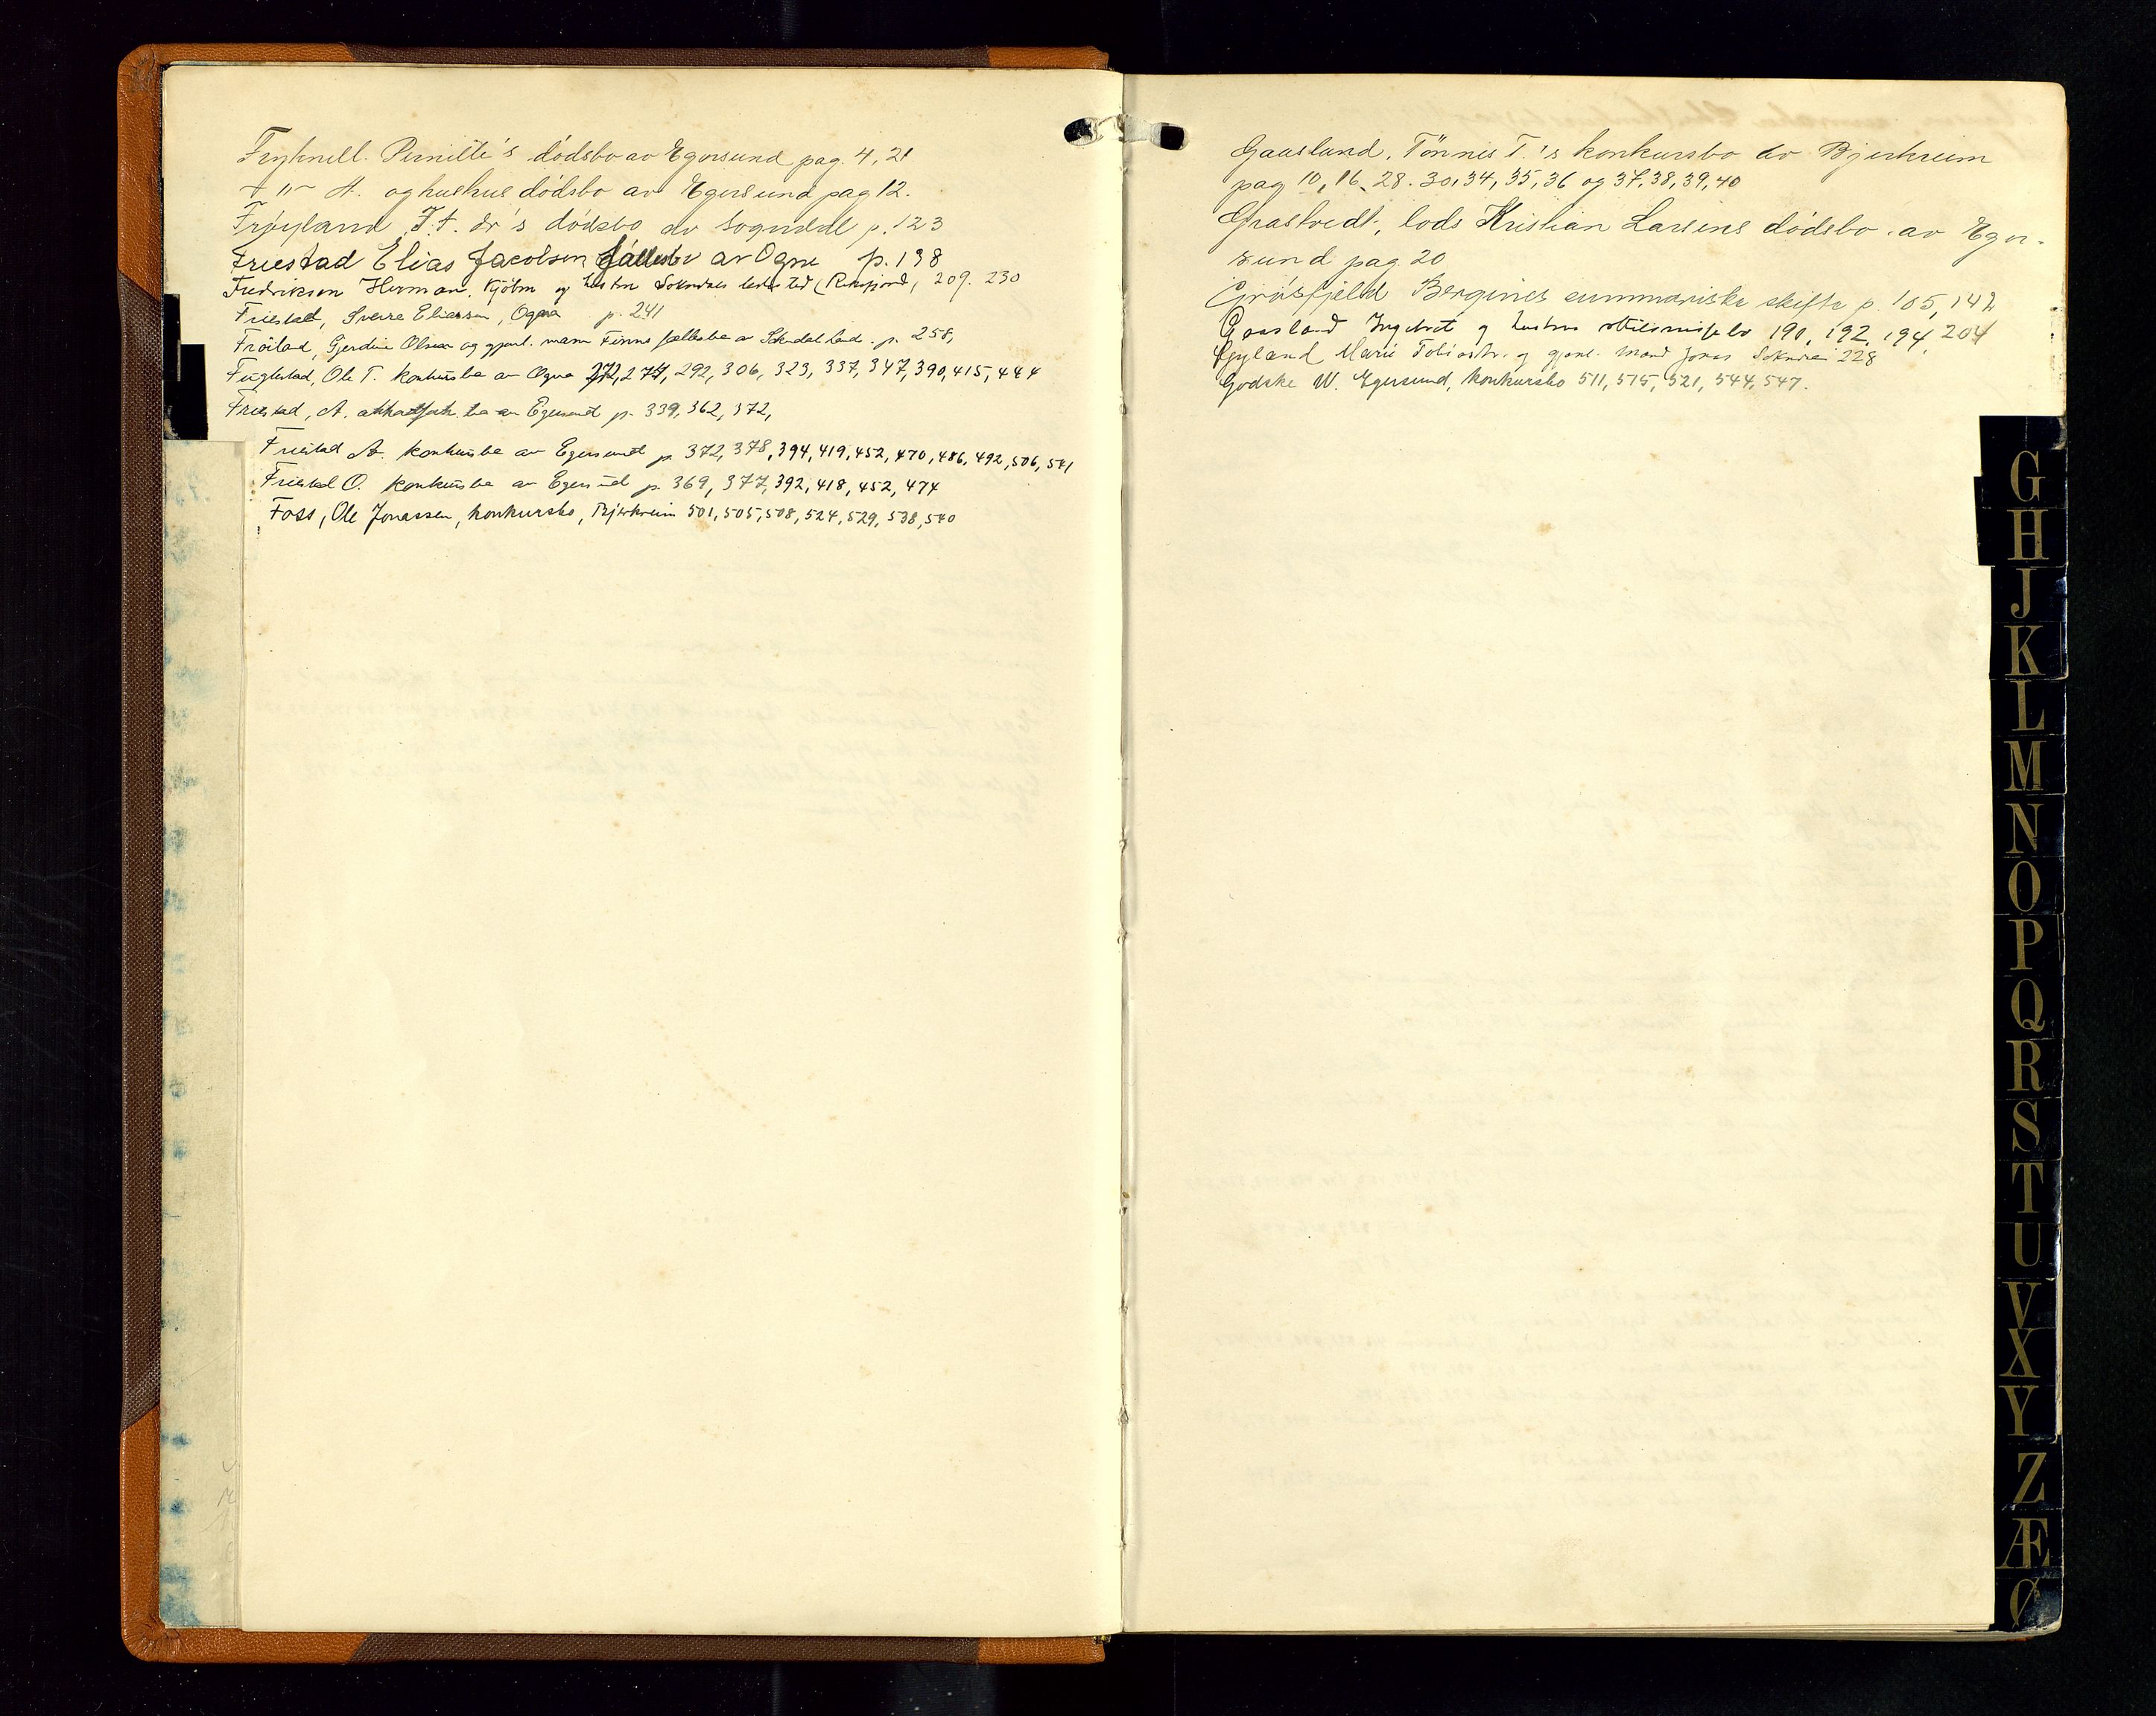 Fryknell. Pernille's dödsbo av Egersund pag. 4, 21
- " - A. og hustrus dödsbo av Egersund pag 12.
Fröyland J. A. dr's dödsbo av Sogndal p. 123
Friestad Elias Jacobsen fällesbo av Ogne p. 138
Fredriksen Herman, Kjöbm og hustru Sokndals ladested (Rekefjord), 209. 230
Friestad, Sverre Eliassen, Ogna p. 241
Fröiland, Gjerdine Olsen og gjenl. mann Finns fællesbo av Sokndal lad. p. 258,
Fuglestad, Ole T. konkursbo av Ogna 272, 274, 292, 306, 323, 337, 347, 390, 415, 444
Friestad, A. akkordforh. bo av Egersund p. 339, 362, 372,
Friestad A. konkursbo av Egersund p. 372, 378, 394, 419, 452, 470, 486, 492, 506, 541
Friestad O. konkursbo av Egersund p. 369, 377, 392, 418, 452, 474
Foss, Ole Jonassen, konkursbo, Bjerkreim 501, 505, 508, 524, 529, 538, 540
Gaasland, Tönnes T.'s konkursbo av Bjerkreim
pag 10, 16, 28. 30, 34, 35, 36 og 37, 38, 39, 40
Grastvedt, lods Kristian Larsens dödsbo av Eger-
sund pag. 20
Gråsfjeld Bergines summariske skifte p. 105, 142
Gaasland Ingebret og hustrus 190, 192, 194, 204
Gyland Marie Tobiasdtr. og gjenl. mand Jonas Sokndal 228
Godske W. Egersund, konkursbo 511, 515, 521, 544, 547.
G
H
J
K
L
M
N
O
P
Q
R
S
T
U
V
X
Y
Z
Æ
Ø